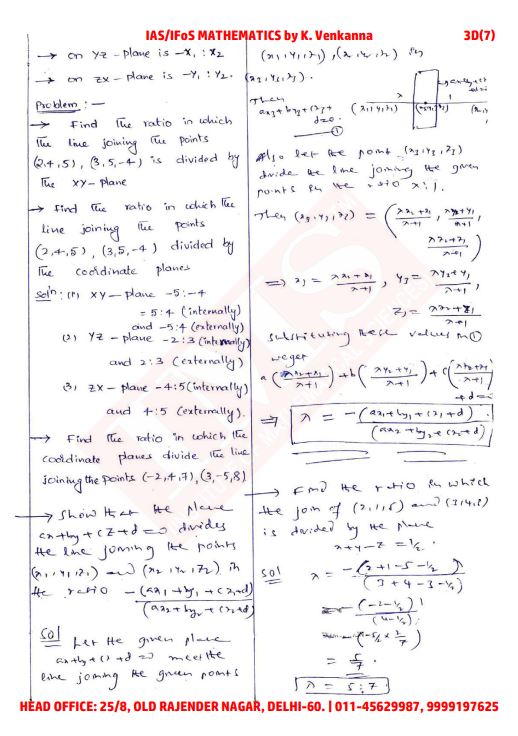 IAS/IFoS MATHEMATICS by K. Venkanna 3D(7)
→ on YZ-plane is -x₁ : x₂
→ on ZX-plane is -y₁ : y₂.
Problem :—
→ Find The ratio in which
The line joining The points
(2,4,5), (3,5,-4) is divided by
The XY-plane
→ Find The ratio in which The
line joining The points
(2,4,5), (3,5,-4) divided by
The coordinate planes
Solⁿ: (1) XY-plane -5:-4
= 5:4 (internally)
and -5:4 (externally)
(2) YZ-plane -2:3 (internally)
and 2:3 (externally)
(3) ZX-plane -4:5 (internally)
and 4:5 (externally).
→ Find The ratio in which the
coordinate planes divide The line
joining the points (-2,4,7), (3,-5,8)
→ Show that the plane
ax+by+cz+d=0 divides
the line joining the points
(x₁,y₁,z₁) and (x₂,y₂,z₂) in
the ratio -(ax₁+by₁+cz₁+d)/(ax₂+by₂+cz₂+d)
Sol Let the given plane
ax+by+cz+d=0 meet the
line joining the given points
(x₁,y₁,z₁), (x₂,y₂,z₂) in
(x₃,y₃,z₃).
Then
ax₃+by₃+cz₃+
d=0. ①
λ 1
(x₁,y₁,z₁)
Also let the point (x₃,y₃,z₃)
divide the line joining the given
points in the ratio λ:1.
Then (x₃,y₃,z₃) = ((λx₂+x₁)/(λ+1), (λy₂+y₁)/(λ+1),
(λz₂+z₁)/(λ+1))
⇒ x₃ = (λx₂+x₁)/(λ+1), y₃ = (λy₂+y₁)/(λ+1),
z₃ = (λz₂+z₁)/(λ+1)
substituting these values in ①
we get
a((λx₂+x₁)/(λ+1)) + b((λy₂+y₁)/(λ+1)) + c((λz₂+z₁)/(λ+1))
+d=0
⇒ λ = -(ax₁+by₁+cz₁+d)/(ax₂+by₂+cz₂+d)
→ Find the ratio in which
the join of (2,1,5) and (3,4,3)
is divided by the plane
x+y-z = 1/2.
Sol λ = -(2+1-5-1/2)/(3+4-3-1/2)
= -(-2-1/2)/(4-1/2)
= -(-5/2 × 2/7)
= 5/7.
λ = 5:7
HEAD OFFICE: 25/8, OLD RAJENDER NAGAR, DELHI-60. | 011-45629987, 9999197625